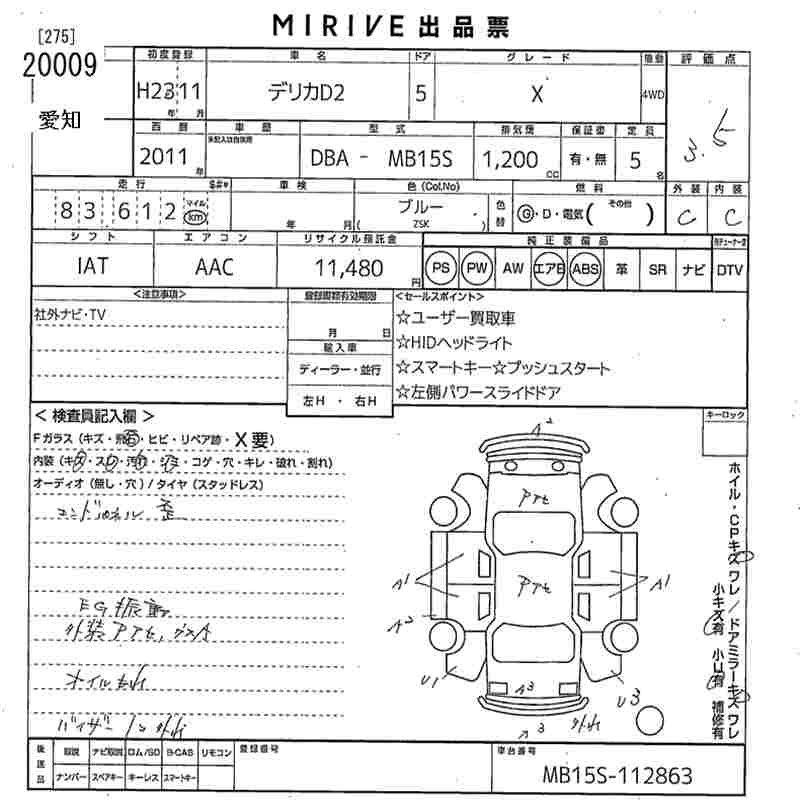 MIRIVE 出品票
[275]
20009
愛知
初度登録 車名 ドア グレード 駆動 評価点
H23 11 デリカD2 5 X 4WD 3.5
年 月
西暦 車歴 型式 排気量 保証書 定員
未記入は自家用
2011 年 DBA - MB15S 1,200 CC 有・無 5 名
走行 $#* 車検 色(Col.No) 燃料 外装 内装
83612 マイル km 年 月 ブルー 色替 G・D・電気( その他 ) C C
( ZSK )
シフト エアコン リサイクル預託金 純正装備品 地デジチューナー
IAT AAC 11,480 円 PS PW AW エアB ABS 革 SR ナビ DTV
<注意事項> 登録書類有効期限 <セールスポイント>
社外ナビ・TV ☆ユーザー買取車
月 日 ☆HIDヘッドライト
輸入車 ☆スマートキー☆プッシュスタート
ディーラー・並行 ☆左側パワースライドドア
左H ・ 右H
<検査員記入欄> キーロック
Fガラス (キズ・飛石・ヒビ・リペア跡・X要)
内装 (キズ・スレ・汚れ・コゲ・穴・キレ・破れ・割れ)
オーディオ (無し・穴) / タイヤ (スタッドレス)
エンドパネル 歪
EG振動
外装Pアセ,
オイルもれ
バイザー
A2
Pアセ
Pアセ
A1 A1
A2
U1 A3 U3
3 外れ
ホイル・CPキズワレ/ドアミラーキズワレ
小キズ有 小U有 補修有
後送品 取説 ナビ取説 ロム/SD B-CAS リモコン 登録番号 車台番号
ナンバー スペアキー キーレス スマートキー MB15S-112863